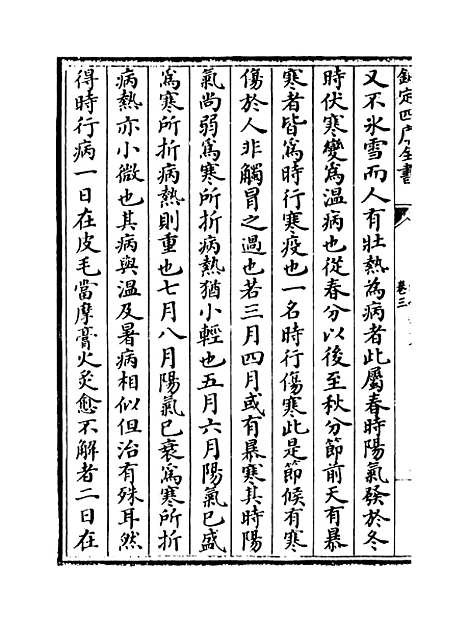 欽定四庫全書
卷三
又不氷雪而人有壯熱為病者此屬春時陽氣發於冬
時伏寒變為温病也從春分以後至秋分節前天有暴
寒者皆為時行寒疫也一名時行傷寒此是節候有寒
傷於人非觸冒之過也若三月四月或有暴寒其時陽
氣尚弱為寒所折病熱猶小輕也五月六月陽氣已盛
為寒所折病熱則重也七月八月陽氣已衰為寒所折
病熱亦小微也其病與温及暑病相似但治有殊耳然
得時行病一日在皮毛當摩膏火炙愈不解者二日在